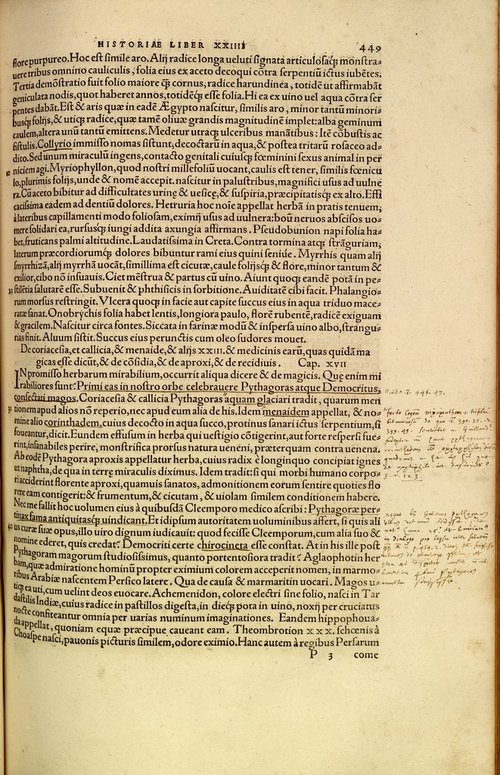 HISTORIAE LIBER XXIIII 449
flore purpureo. Hoc est simile aro. Alij radice longa ueluti signata articulosaq́; monstra-
uere tribus omnino cauliculis, folia eius ex aceto decoqui cõtra serpentiũ ictus iubẽtes.
Tertia demõstratio fuit folio maiore q̃ cornus, radice harundinea, totidẽ ut affirmabãt
geniculata nodis, quot haberet annos, totidẽq́; esse folia. Hi ea ex uino uel aqua cõtra ser
pentes dabãt. Est & aris quæ in eadẽ Ægypto nascitur, similis aro, minor tantũ minori-
busq́; folijs, & utiq́; radice, quæ tamẽ oliuæ grandis magnitudinẽ implet: alba geminum
caulem, altera unũ tantũ emittens. Medetur utraq; ulceribus manãtibus: Itẽ cõbustis ac
fistulis. Collyrio immisso nomas sistunt, decoctarũ in aqua, & postea tritarũ rosaceo ad-
dito. Sed unum miraculũ ingens, contacto genitali cuiusq́; fœminini sexus animal in per
niciem agi. Myriophyllon, quod nostri millefoliũ uocant, caulis est tener, similis fœnicu
lo, plurimis folijs, unde & nomẽ accepit. nascitur in palustribus, magnifici usus ad uulne
ra. Cũ aceto bibitur ad difficultates urinę & uesicę, & suspiria, præcipitatisq́; ex alto. Effi
cacissima eadem ad dentiũ dolores. Hetruria hoc noĩe appellat herbã in pratis tenuem,
à lateribus capillamenti modo foliosam, eximij usus ad uulnera: boũ neruos abscisos uo-
mere solidari ea, rursusq́; iungi addita axungia affirmans. Pseudobunion napi folia ha-
bet, fruticans palmi altitudine. Laudatissima in Creta. Contra tormina atq; strãguriam,
laterum præcordiorumq́; dolores bibuntur rami eius quini senisue. Myrrhis quam alij
smyrrhizã, alij myrrhã uocãt, simillima est cicutæ, caule folijsq́; & flore, minor tantum &
exilior, cibo nõ insuauis. Ciet mẽstrua & partus cũ uino. Aiunt quoq; eandẽ potã in pe-
stilẽtia salutarẽ esse. Subuenit & phthisicis in sorbitione. Auiditatẽ cibi facit. Phalangio-
rum morsus restringit. Vlcera quoq; in facie aut capite succus eius in aqua triduo mace-
ratæ sanat. Onobrychis folia habet lentis, longiora paulo, florẽ rubentẽ, radicẽ exiguam
& gracilem. Nascitur circa fontes. Siccata in farinæ modũ & inspersa uino albo, strangu-
rias finit. Aluum sistit. Succus eius perunctis cum oleo sudores mouet.
De coriacesia, et callicia, & menaide, & alijs XXIII, & medicinis earũ, quas quidã ma
gicas esse dicũt, & de cõsidia, & de aproxi, & de recidiuis. Cap. XVII
IN promisso herbarum mirabilium, occurrit aliqua dicere & de magicis. Quę enim mi
rabiliores sunt? Primi eas in nostro orbe celebrauere Pythagoras atque Democritus,
consectati magos. Coriacesia & callicia Pythagoras aquam glaciari tradit, quarum men
tionem apud alios nõ reperio, nec apud eum alia de his. Idem menaidem appellat, & no-
mine alio corinthadem, cuius decocto in aqua succo, protinus sanari ictus serpentium, si
foueantur, dicit. Eundem effusum in herba qui uestigio cõtigerint, aut forte respersi fue-
rint, insanabiles perire, monstrifica prorsus natura ueneni, præterquam contra uenena.
Ab eodẽ Pythagora aproxis appellatur herba, cuius radix è longinquo concipiat ignes
ut naphtha, de qua in terræ miraculis diximus. Idem tradit: si qui morbi humano corpo-
ri acciderint florente aproxi, quamuis sanatos, admonitionem eorum sentire quoties flo
rere eam contigerit: & frumentum, & cicutam, & uiolam similem conditionem habere.
Nec me fallit hoc uolumen eius à quibusdã Cleemporo medico ascribi: Pythagoræ per-
tinax fama antiquitasq́; uindicant. Et idipsum autoritatem uoluminibus affert, si quis ali
us curæ suæ opus, illo uiro dignum iudicauit: quod fecisse Cleemporum, cum alia suo &
nomine ederet, quis credat? Democriti certe chirocineta esse constat. At in his ille post
Pythagoram magorum studiosissimus, quanto portentosiora tradit? Aglaophotin her-
bam, quæ admiratione hominũ propter eximium colorem acceperit nomen, in marmo-
ribus Arabiæ nascentem Persico latere. Qua de causa & marmaritin uocari. Magos u
tiq; ea uti, cum uelint deos euocare. Achemenidon, colore electri sine folio, nasci in Tar
dastilis Indiæ, cuius radice in pastillos digesta, in dieq́; pota in uino, noxij per cruciatus
nocte confiteantur omnia per uarias numinum imaginationes. Eandem hippophoua-
da appellat, quoniam equæ præcipue caueant eam. Theombrotion XXX. schœnis à
Choaspe nasci, pauonis picturis similem, odore eximio. Hanc autem à regibus Persarum
P 3 come